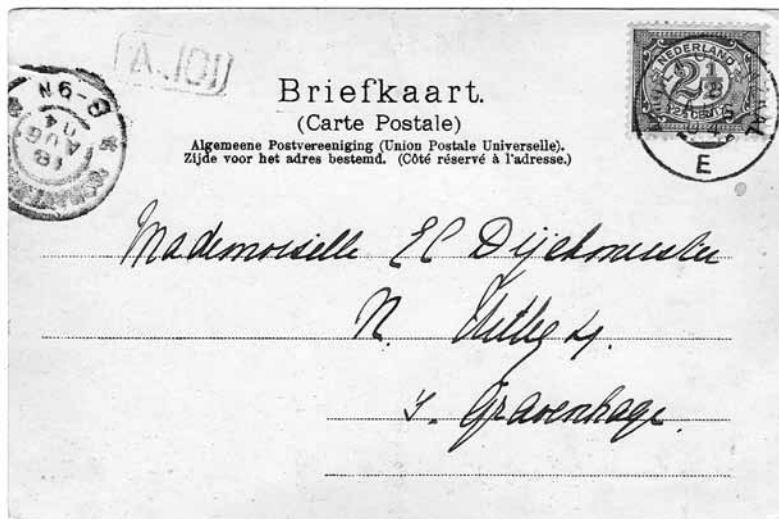 A. 101
8-9N
18
AUG
04
NEDERLAND
2½
CENT
E
Briefkaart.
(Carte Postale)
Algemeene Postvereeniging (Union Postale Universelle).
Zijde voor het adres bestemd. (Côté réservé à l'adresse.)
Mademoiselle EC Dijckmeester
N.
s. Gravenhage.